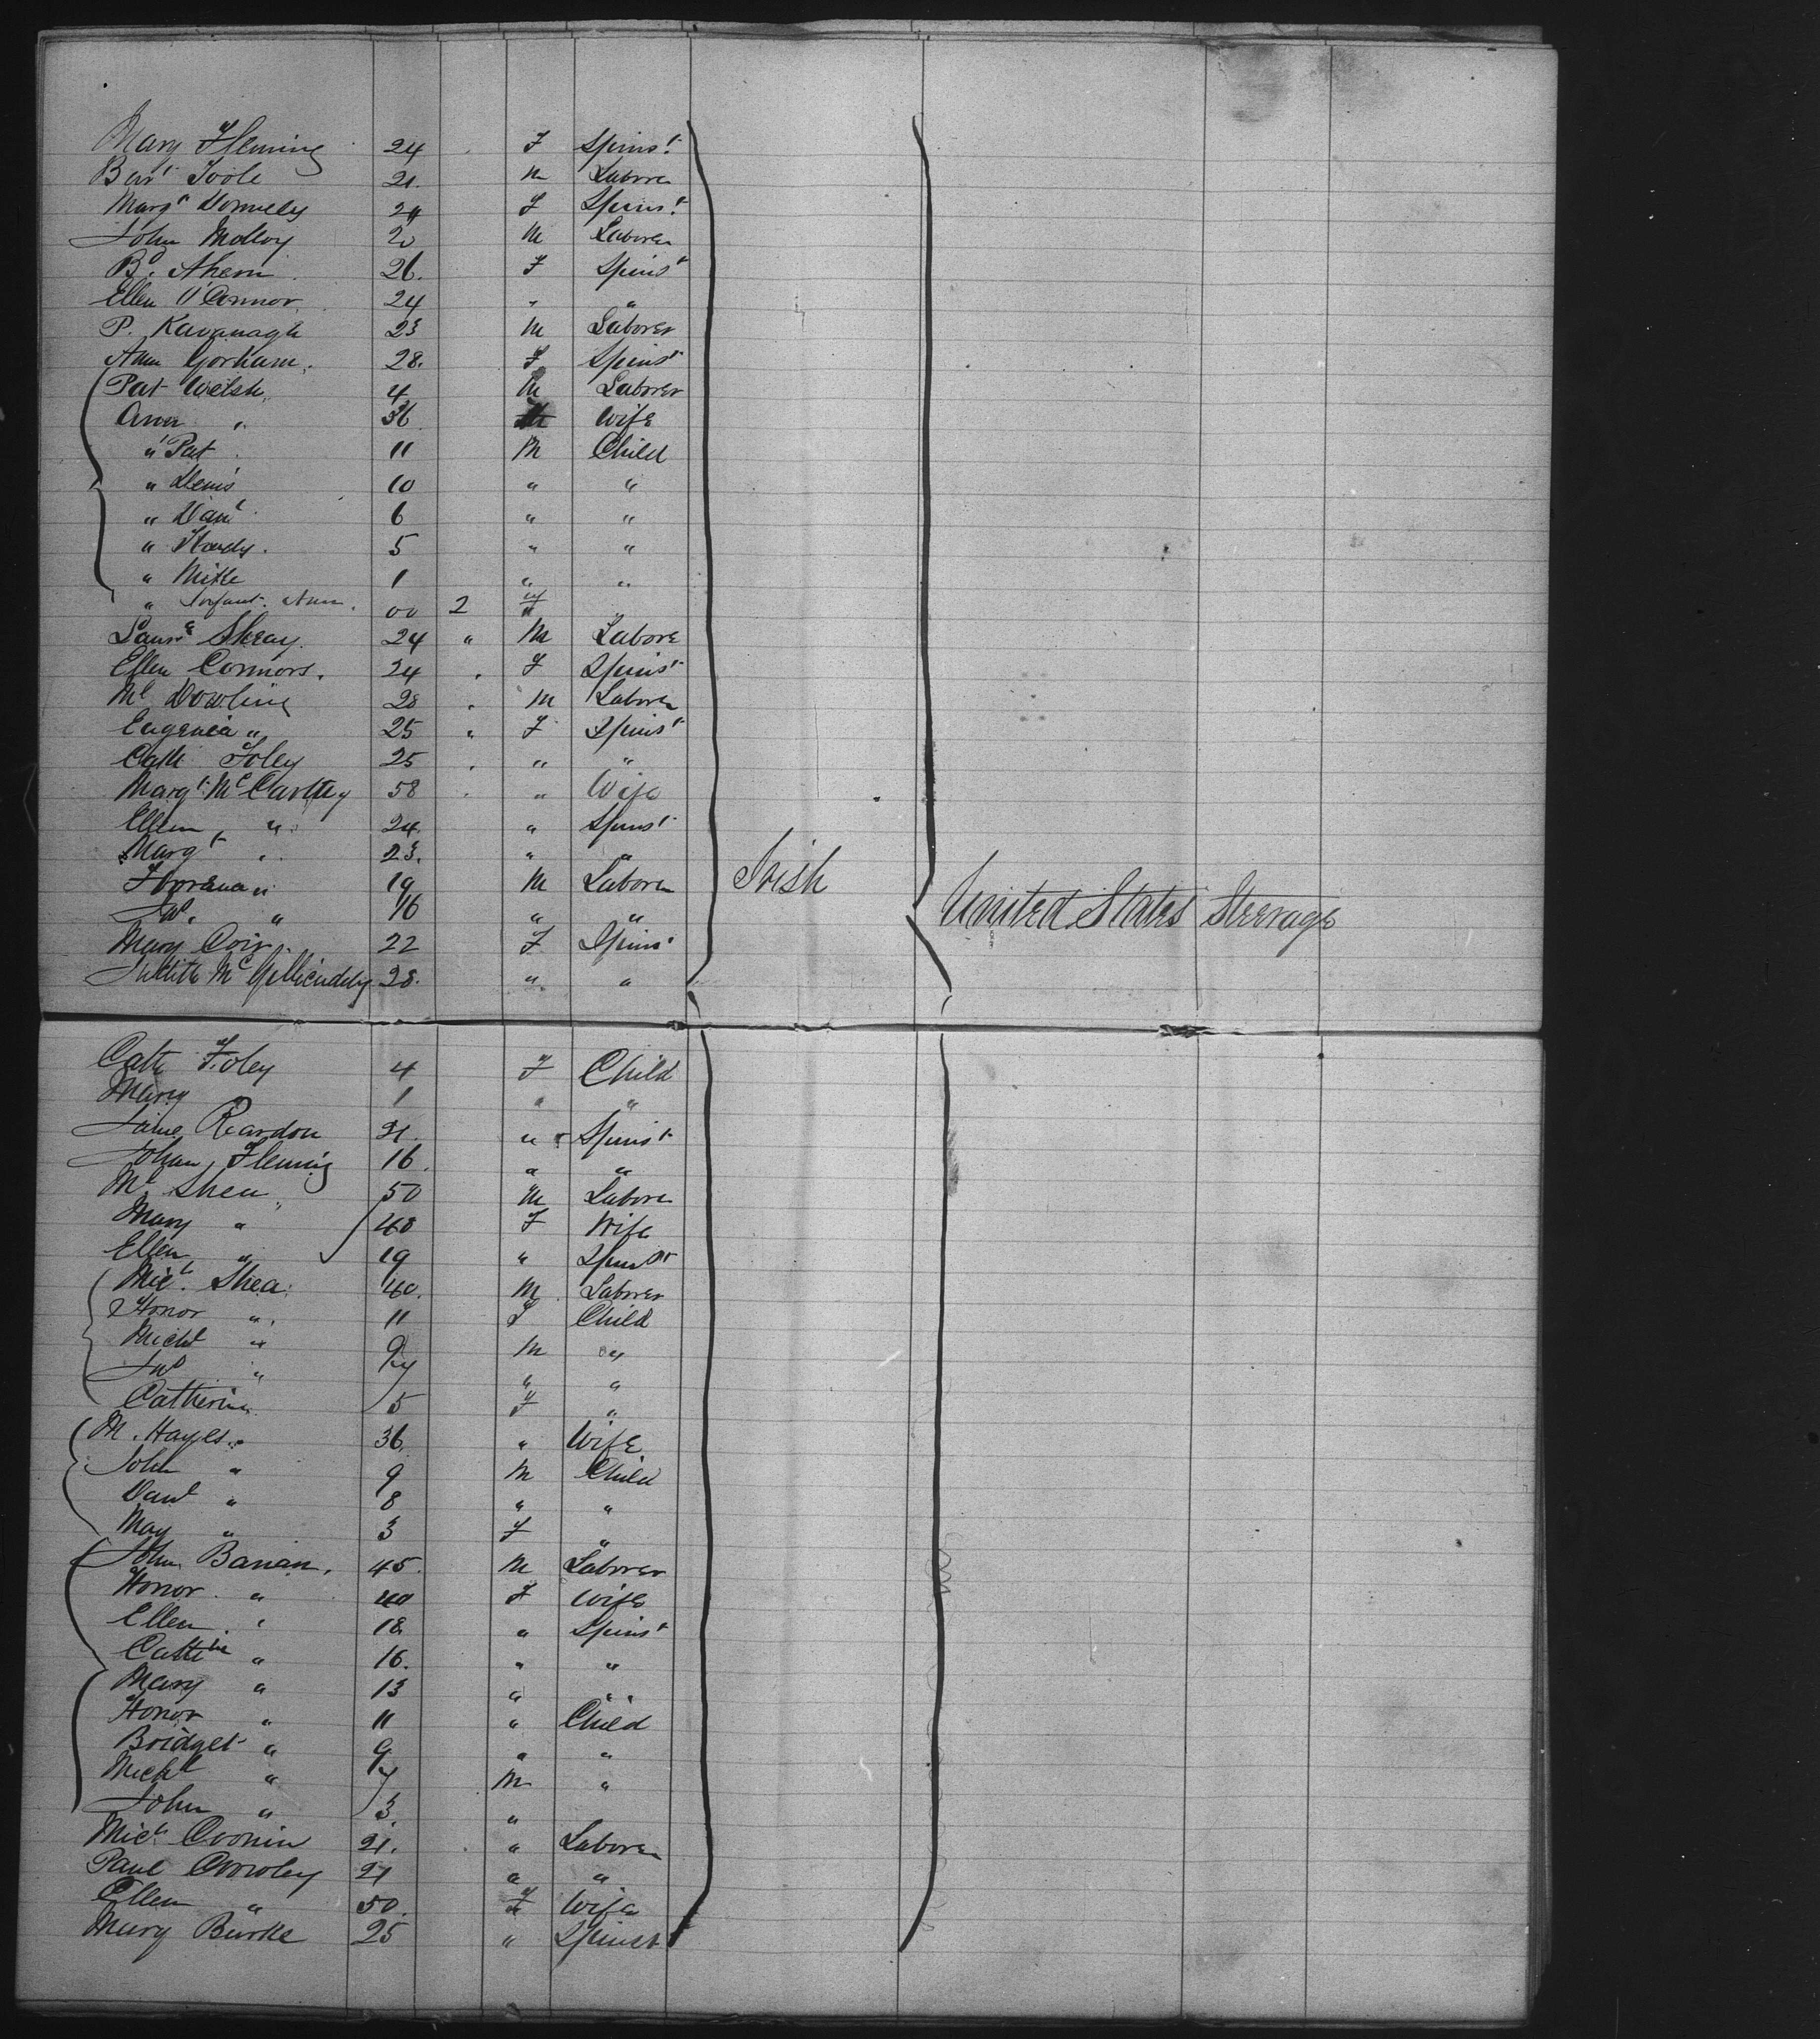 Mary Fleming 24 F Spinst
Bart Toole 21. M Laborer
Margt Donnely 24 F Spinst
John Molloy 20 M Laborer
Bd. Ahern 26. F Spinst
Ellen O'Connor 24 " "
P. Kavanagh 23 M Laborer
Ann Gorham. 28. F Spinst
Pat Welsh 4 M Laborer
Ann " 36 Wife
" Pat 11 M Child
" Denis 10 " "
" Danl 6 " "
" 5 " "
" Mike 1 " "
" Infant. Ann. 00 2 "
Laurce Skeay. 24 " M Labore
Ellen Connors. 24 " F Spinst
Ml Dowling 28 " M Laborer
Eugenia " 25 " F Spinst
Cath Foley 25 " " "
Margt McCarthy 58 " Wife
Ellen " 24. " Spinst
Margt " 23. " "
" 19 M Laborer Irish
Jno. " 16 " " United States Steerage
Mary 22 F Spins
Judith McGillicuddy 28. " "
Cath Foley 4 F Child
Mary " 1 " "
Jane Reardon 21. " Spinst
Johan, Fleming 16. " "
Ml Shea 50 M Laborer
Mary " 48 F Wife
Ellen " 19 " Spinst
Micl. Shea. 40. M Laborer
Honor " 11 F Child
Michl " 9 M "
Jno " 7 " "
Catherine 5 F "
M. Hayes. 36. " Wife
John " 9 M Child
Danl " 8 " "
May " 3 F "
John Banan. 45. M Laborer
Honor " 40 F Wife
Ellen " 18 " Spinst
Cathne " 16. " "
Mary " 13 " "
Honor " 11 " Child
Bridget " 9 " "
Michl " 7 M "
John " 3. "
Micl. Cronin 21. " Laborer
Paul Crowley 21 " "
Ellen " 50. F Wife
Mary Burke 25 " Spinst